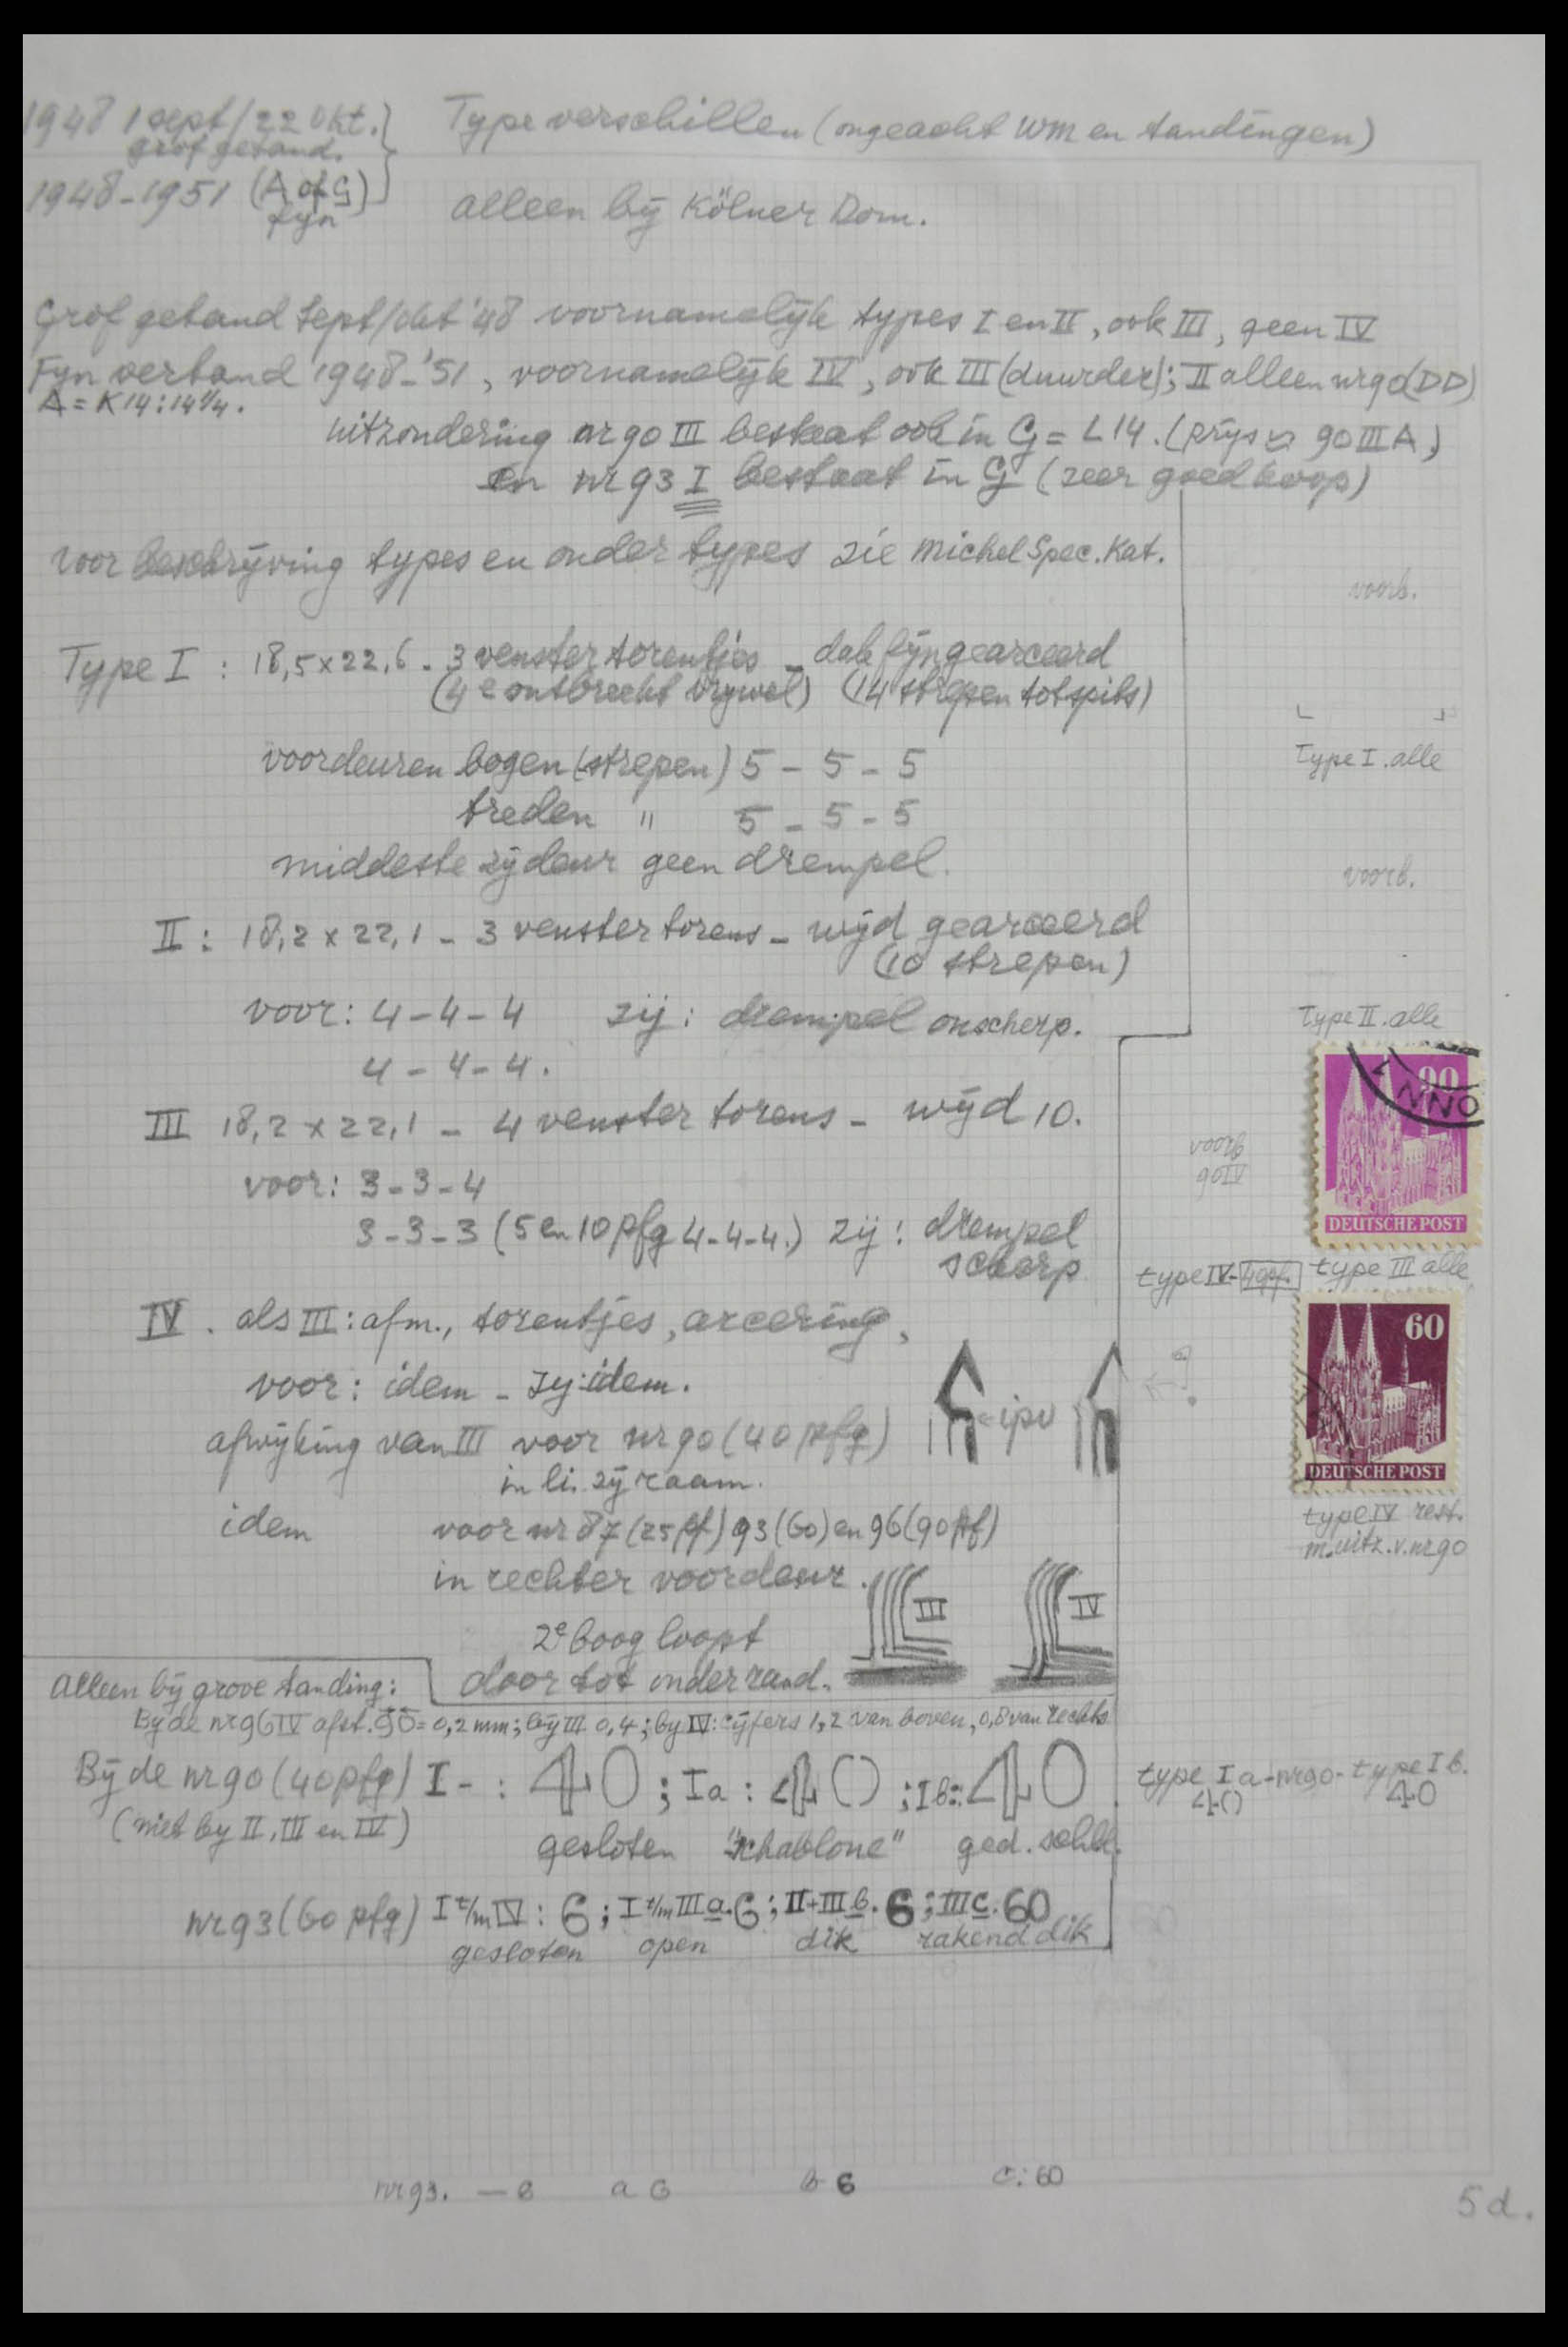 1948 1 sept/22 okt. } Type verschillen (ongeacht WM en tandingen)
grof getand.
1948-1951 (A of G) alleen bij Kölner Dom.
fyn
Grof getand sept/okt '48 voornamelijk types I en II, ook III, geen IV
Fyn vertand 1948-'51, voornamelijk IV, ook III (duurder); II alleen nr 90 (DD)
A = K14:14¼.
uitzondering nr 90 III bestaat ook in G = L14. (prijs ≈ 90 III A)
en nr 93 I bestaat in G (zeer goedkoop)
voor beschrijving types en onder types zie Michel Spec. Kat.
voorb.
Type I : 18,5 x 22,6 - 3 venster torentjes - dak fijn gearceerd
(4e ontbreekt vrijwel) (14 strepen tot spits)
voordeuren bogen (strepen) 5 - 5 - 5
Type I. alle
treden " 5 - 5 - 5
middeste zijdeur geen drempel.
voorb.
II : 18,2 x 22,1 - 3 venster torens - wijd gearceerd
(10 strepen)
voor: 4-4-4 zij: drempel onscherp.
Type II. alle
4 - 4 - 4.
90
NNO
DEUTSCHE POST
III 18,2 x 22,1 - 4 venster torens - wijd 10.
voorb
90IV
voor: 3-3-4
3-3-3 (5 en 10 pfg 4-4-4.) zij: drempel
scherp
type IV-40pf. type III alle
IV. als III: afm., torentjes, arcering,
60
DEUTSCHE POST
voor: idem - zy: idem.
afwijking van III voor nr 90 (40 pfg) ipv
in li. zijraam.
idem voor nr 87 (25 pf) 93 (60) en 96 (90 pf)
type IV rest.
m. uitz. v. nr 90
in rechter voordeur. III IV
2e boog loopt
door tot onderrand.
Alleen bij grove tanding:
By de nr 96 IV afst. 90 = 0,2 mm; bij III 0,4; by IV: cijfers 1,2 van boven, 0,8 van rechts
Bij de nr 90 (40 pfg) I - : 40 ; Ia : 40 ; Ib: 40
(niet by II, III en IV)
type Ia - nr 90 - type Ib.
40 40
gesloten "schablone" ged. schbl.
nr 93 (60 pfg) I t/m IV : 6 ; I t/m III a. 6 ; II + III b. 6 ; III c. 60
gesloten open dik rakend dik
nr 93. — 6 a 6 b 6 c: 60
5 d.